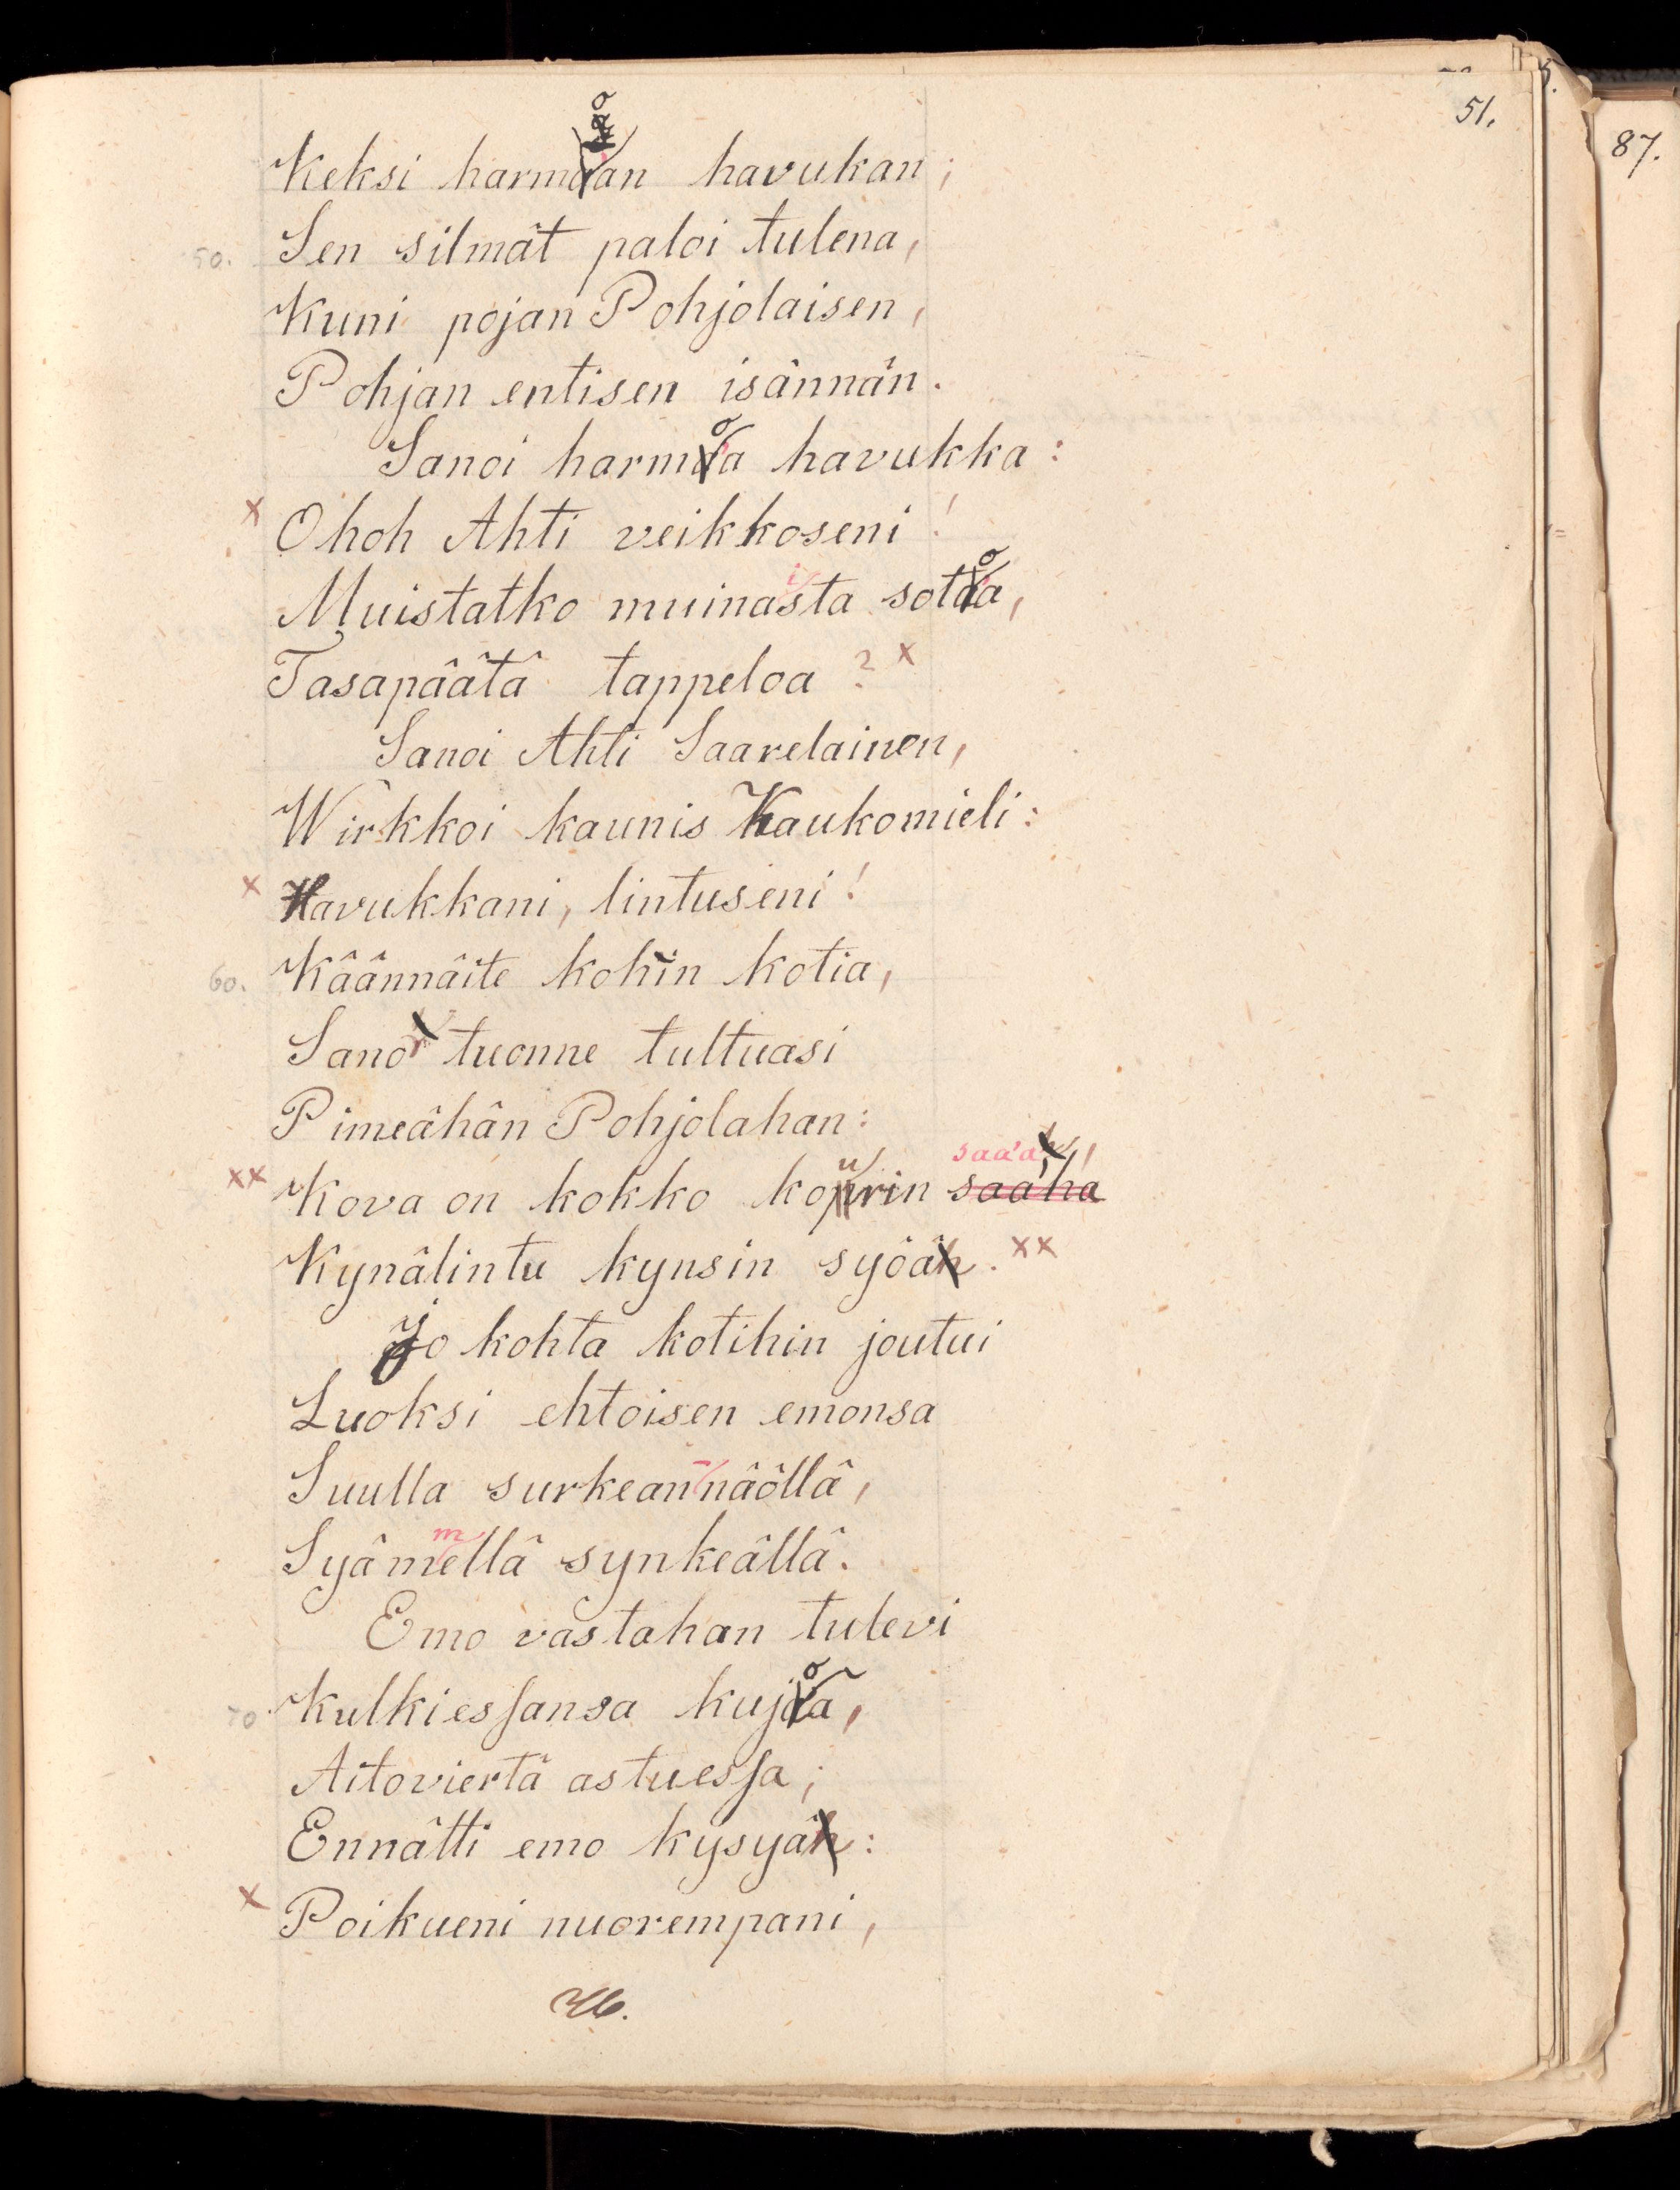 51.
87.
Keksi harmoan havukan;
50. Sen silmät paloi tulena,
Kuni pojan Pohjolaisen,
Pohjan entisen isännän.
Sanoi harmoa havukka:
x Ohoh Ahti veikkoseni!
Muistatko muinaista sotoa,
Tasapäätä tappeloa? x
Sanoi Ahti Saarelainen,
Wirkkoi kaunis Kaukomieli:
x Havukkani, lintuseni!
60. Käännäite kohin kotia,
Sano tuonne tultuasi
Pimeähän Pohjolahan:
saa'a,
xx Kova on kokko kourin saa'ha
Kynälintu kynsin syöä. xx
Jo kohta kotihin joutui
Luoksi ehtoisen emonsa
Suulla surkeannäöllä,
Syämmellä synkeällä.
Emo vastahan tulevi
70. Kulkiessansa kujoa,
Aitoviertä astuessa;
Ennätti emo kysyä:
x Poikueni nuorempani,